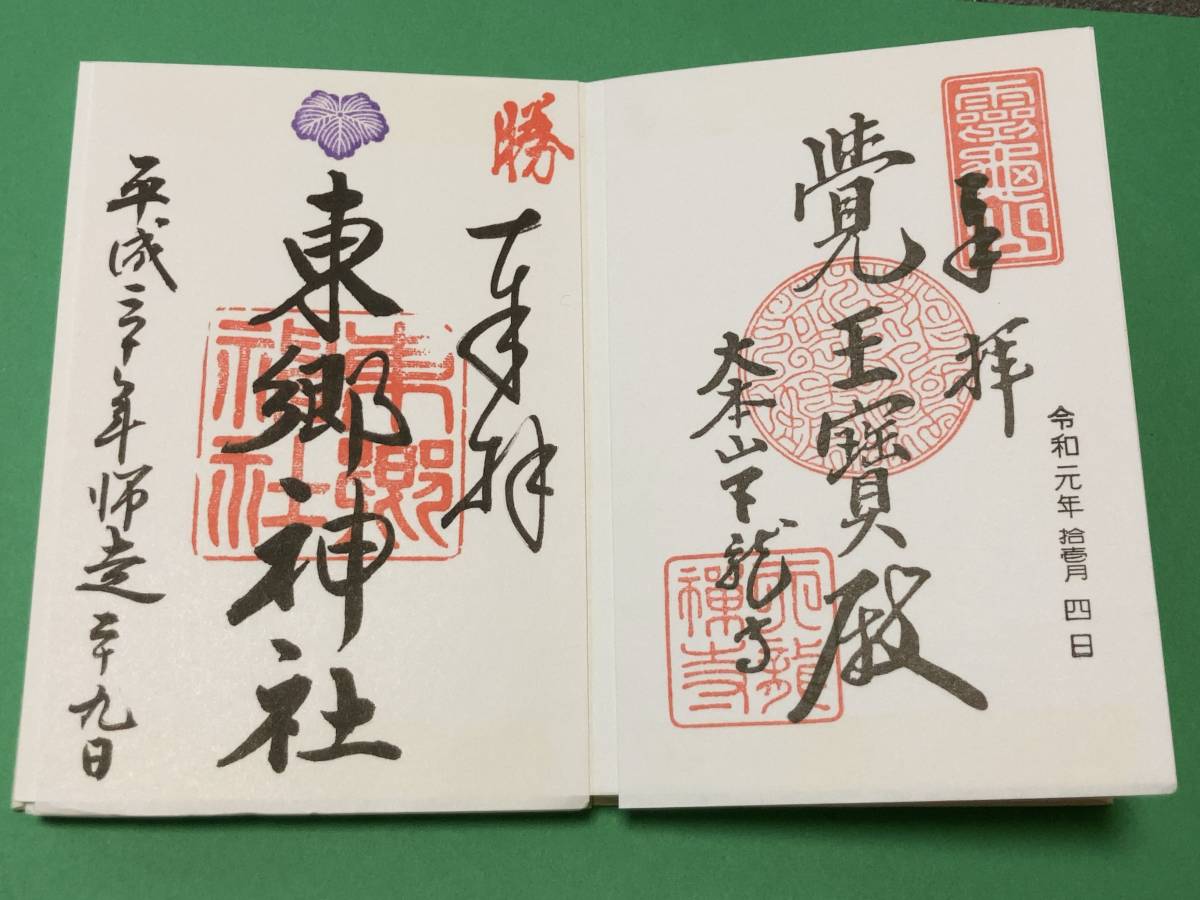 靈龜山
奉拝
令和元年 拾壱月 四日
覺王寶殿
大本山天龍寺
天龍禅寺
勝
奉拝
東郷神社
東郷神社
平成三十年師走二十九日